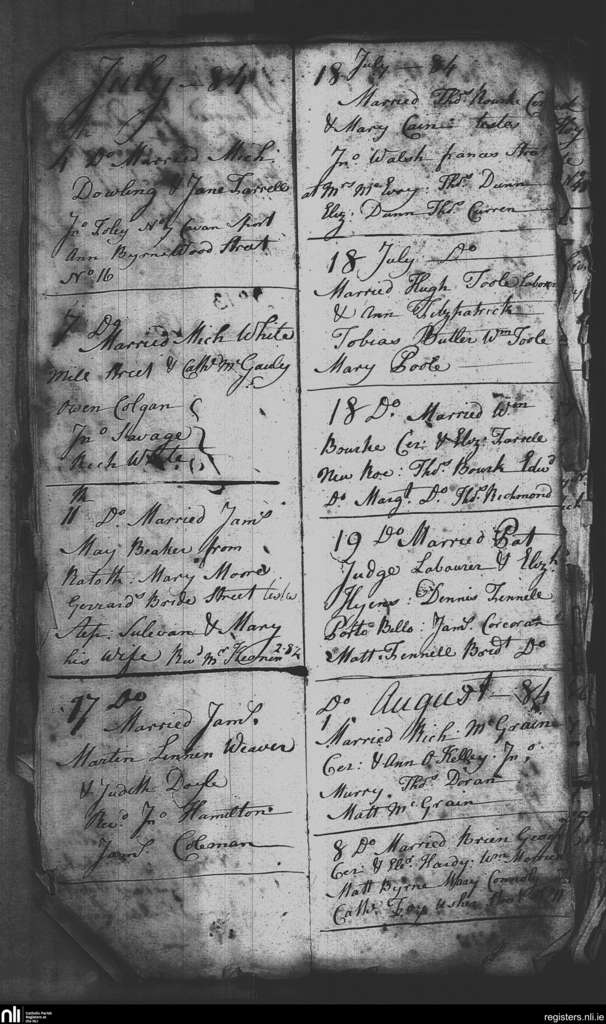 July – 84
4 Do Married Mich
Dowling & Jane Farrell
Jno Foley No 7 Cavan Port
Ann Byrne Wood Street
No 16
7 Do
Married Mich White
Mill Street & Cath McGauley
Owen Colgan
Jno Savage
Rich White
11th Do Married Jams
May Beaker from
Ratoth: Mary Moore
Gerrard Bride Street
Step: Sulevan & Mary
his Wife Revd Mr 2-84
17 Do
Married Jams
Martin Linnen Weaver
& Judith Doyle
Revd Jno Hamilton
Jams Coleman
18 July – 84
Married Thos Rourke
& Mary Cain testes
Jno Walsh frances
at Mrs McEvoy: Thos Dunn
Eliz: Dunn Thos Curren
18 July Do
Married Hugh Toole Laborer
& Ann Fitzpatrick
Tobias Butler Wm Toole
Mary Poole
18 Do Married Wm
Bourke Cer: & Eliz: Farrell
New Roe: Thos Bourk Edwd
Do Margt Do Thos Richmond
19 Do Married Pat
Judge Labourer & Elizh
Hyens: Dennis Fennele
Porto Bello: Jams Corcoran
Matt: Fennell Bridt Do
Do August – 84
1
Married Rich McGrain
Cer: & Ann O Kelley Jno
Murry, Thos Doran
Matt McGrain
8 Do Married Brien
Cer: & Hardy: Wm
Matt Byrne Mary Connoly
Cath:
nli
Catholic Parish
Registers at
the NLI
registers.nli.ie